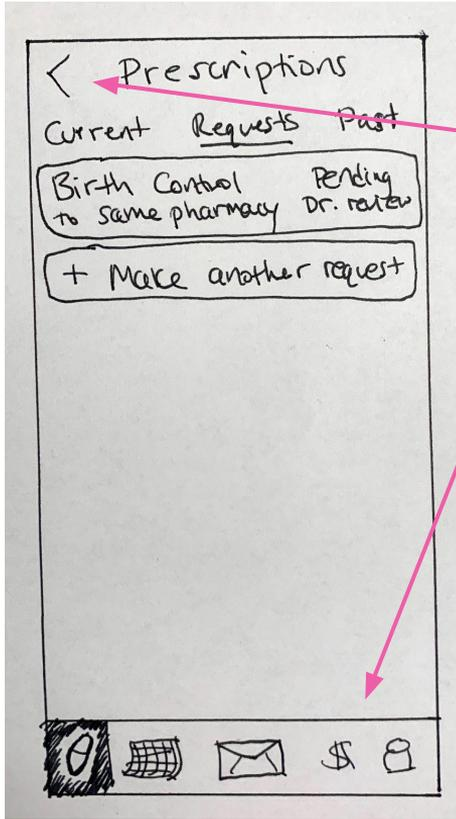 < Prescriptions
Current Requests Past
Birth Control Pending
to same pharmacy Dr. review
+ Make another request
$